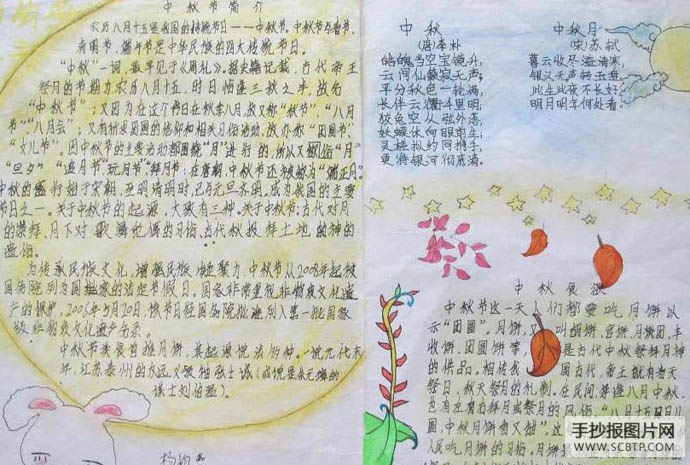 中秋节简介
农历八月十五是我国的传统节日——中秋节。中秋节与春节、
清明节、端午节是中华民族的四大传统节日。
“中秋”一词，最早见于《周礼》。据史籍记载，古代帝王
祭月的节期为农历八月十五，时日恰逢三秋之半，故名
“中秋节”；又因为在这个节日在秋季八月，故又称“秋节”、“八月
节”“八月会”；又有祈求团圆的信仰和相关习俗活动，故亦称“团圆节”、
“女儿节”。因中秋节的主要活动都围绕“月”进行的，所以又俗称“月
“月夕”“追月节”“玩月节”“拜月节”；在唐朝，中秋节还被称为“端正月”。
中秋的盛行始于宋朝，至明清明时，已与元旦齐名，成为我国的主要
节日之一。关于中秋节的起源，大致有三种。关于中秋节：古代对月
的崇拜、月下对歌舞记偶的习俗，古代秋报拜土地的神的
遗俗。
为传承民族文化，增强民族凝聚力，中秋节从2008年起被
国务院列为国家的法定节假日。国家非常重视非物质文化遗
产的保护，2006年5月20日，该节日经国务院批准列入第一批国家
级非物质文化遗产名录。
中秋节来俱有推月饼，其起源说法多种。一说元代末
年，江苏泰州的反元义领袖张士诚（或说是朱元璋的
谋士刘伯温）。
杨钧
中秋
(唐)李朴
皓魄当空宝镜升，
云间仙籁寂无声；
平分秋色一轮满，
长伴云衢千里明；
狡兔空从弦外落，
妖蟆休向眼前生；
灵槎拟约同携手，
更待银河彻底清。
中秋月
(宋)苏轼
暮云收尽溢清寒，
银汉无声转玉盘，
此生此夜不长好，
明月明年何处看。
中秋
中秋节这一天人们都要吃月饼以
示“团圆”。月饼，又叫胡饼、宫饼、月团、丰
收饼、团圆饼等，是古代中秋祭拜月神
的供品。相传我国古代，帝王就有春天
祭日，秋天祭月的礼制。在民间每逢八月中秋，
也有左右拜月或祭月的风俗。“八月十五月儿
圆，中秋月饼香又甜”，这
人民吃月饼的习俗。月饼
手抄报图片网
WWW.SCBTP.COM